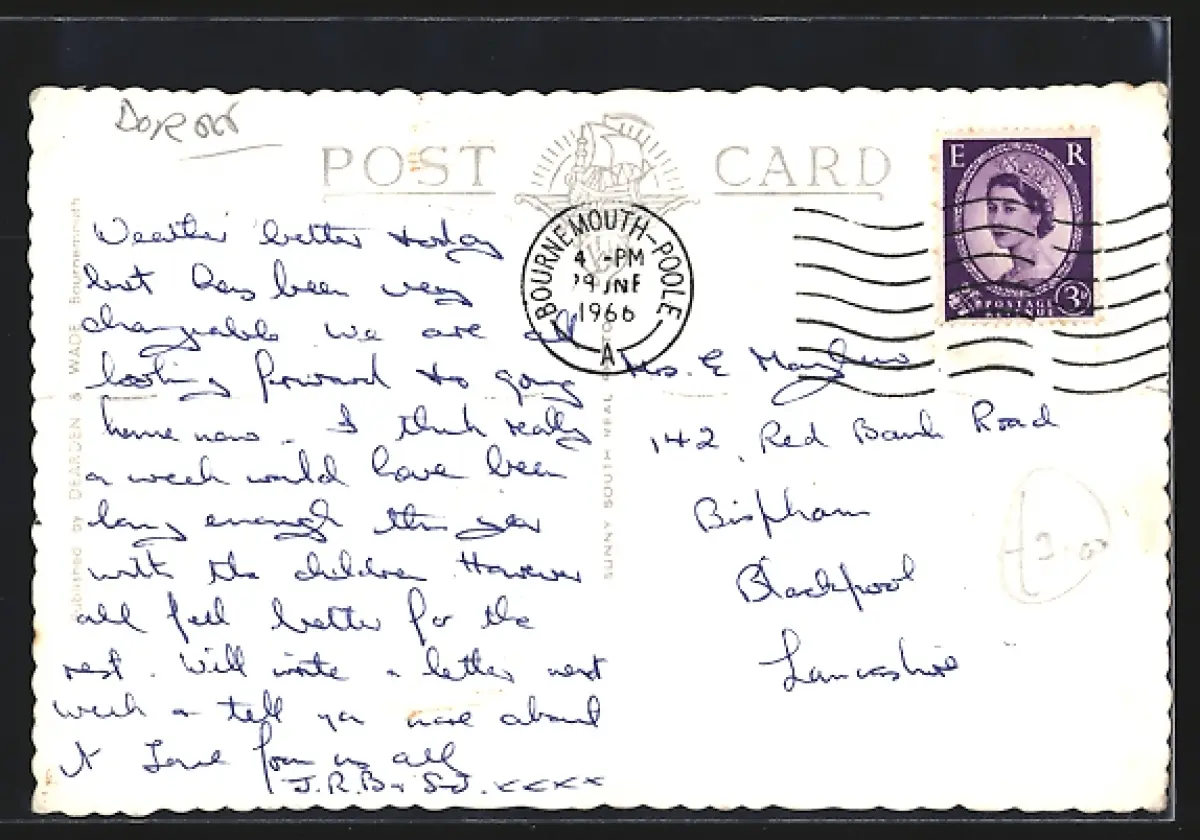 POST CARD
Weather better today
but has been very
changeable we are all
looking forward to going
home now. I think really
a week would have been
long enough this year
with the children. However
all feel better for the
rest. Will write a letter next
week & tell you more about
it Love from us all
J.R.B & S.J. xxxx
BOURNEMOUTH-POOLE
4 -PM
JNE
1966
A
E R
POSTAGE
REVENUE
3D
Mrs. E
142, Red Bank Road
Bispham
Blackpool
Lancashire
Published by DEARDEN & WADE Bournemouth
SUNNY SOUTH